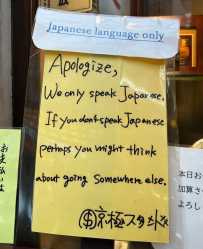 Japanese language only
Apologize,
We only speak Japanese.
If you don't speak Japanese
perhaps you might think
about going somewhere else.
京極スタンド
お支払いは
本日お
加算さ
よろし